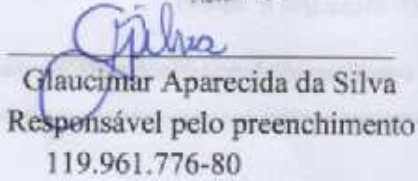 Glaucimar Aparecida da Silva
Responsável pelo preenchimento
119.961.776-80